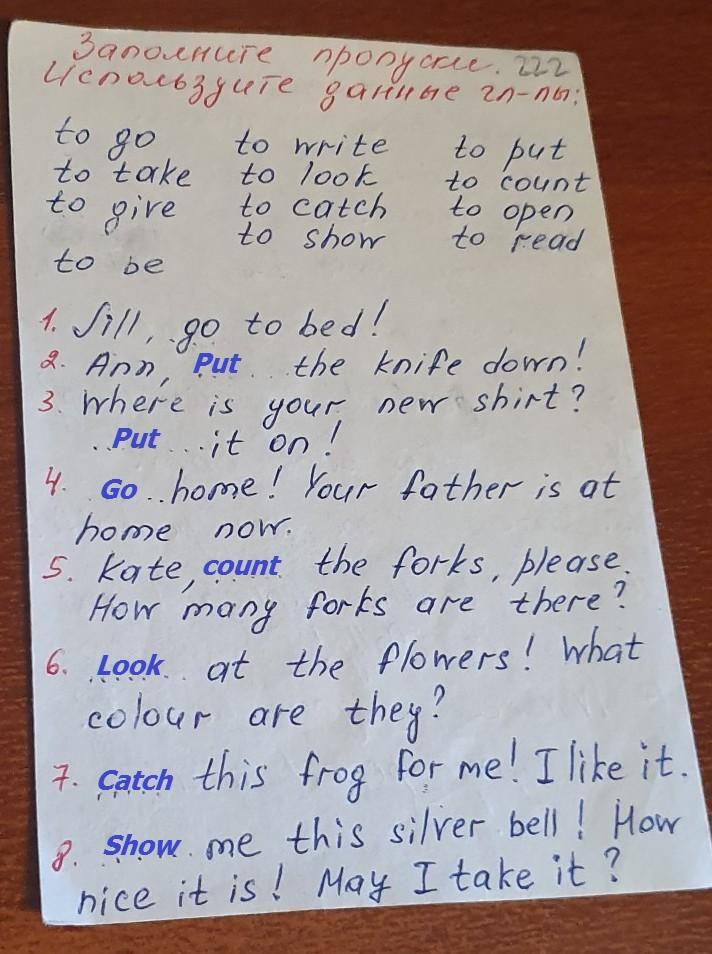 Заполните пропуски. 222
Используйте данные гл-лы:
to go to write to put
to take to look to count
to give to catch to open
to show to read
to be
1. Jill, go to bed!
2. Ann, Put... the knife down!
3. Where is your new shirt?
..Put...it on!
4. Go..home! Your father is at
home now.
5. Kate, count the forks, please.
How many forks are there?
6. Look.. at the flowers! What
colour are they?
7. Catch this frog for me! I like it.
8. Show. me this silver bell! How
nice it is! May I take it?